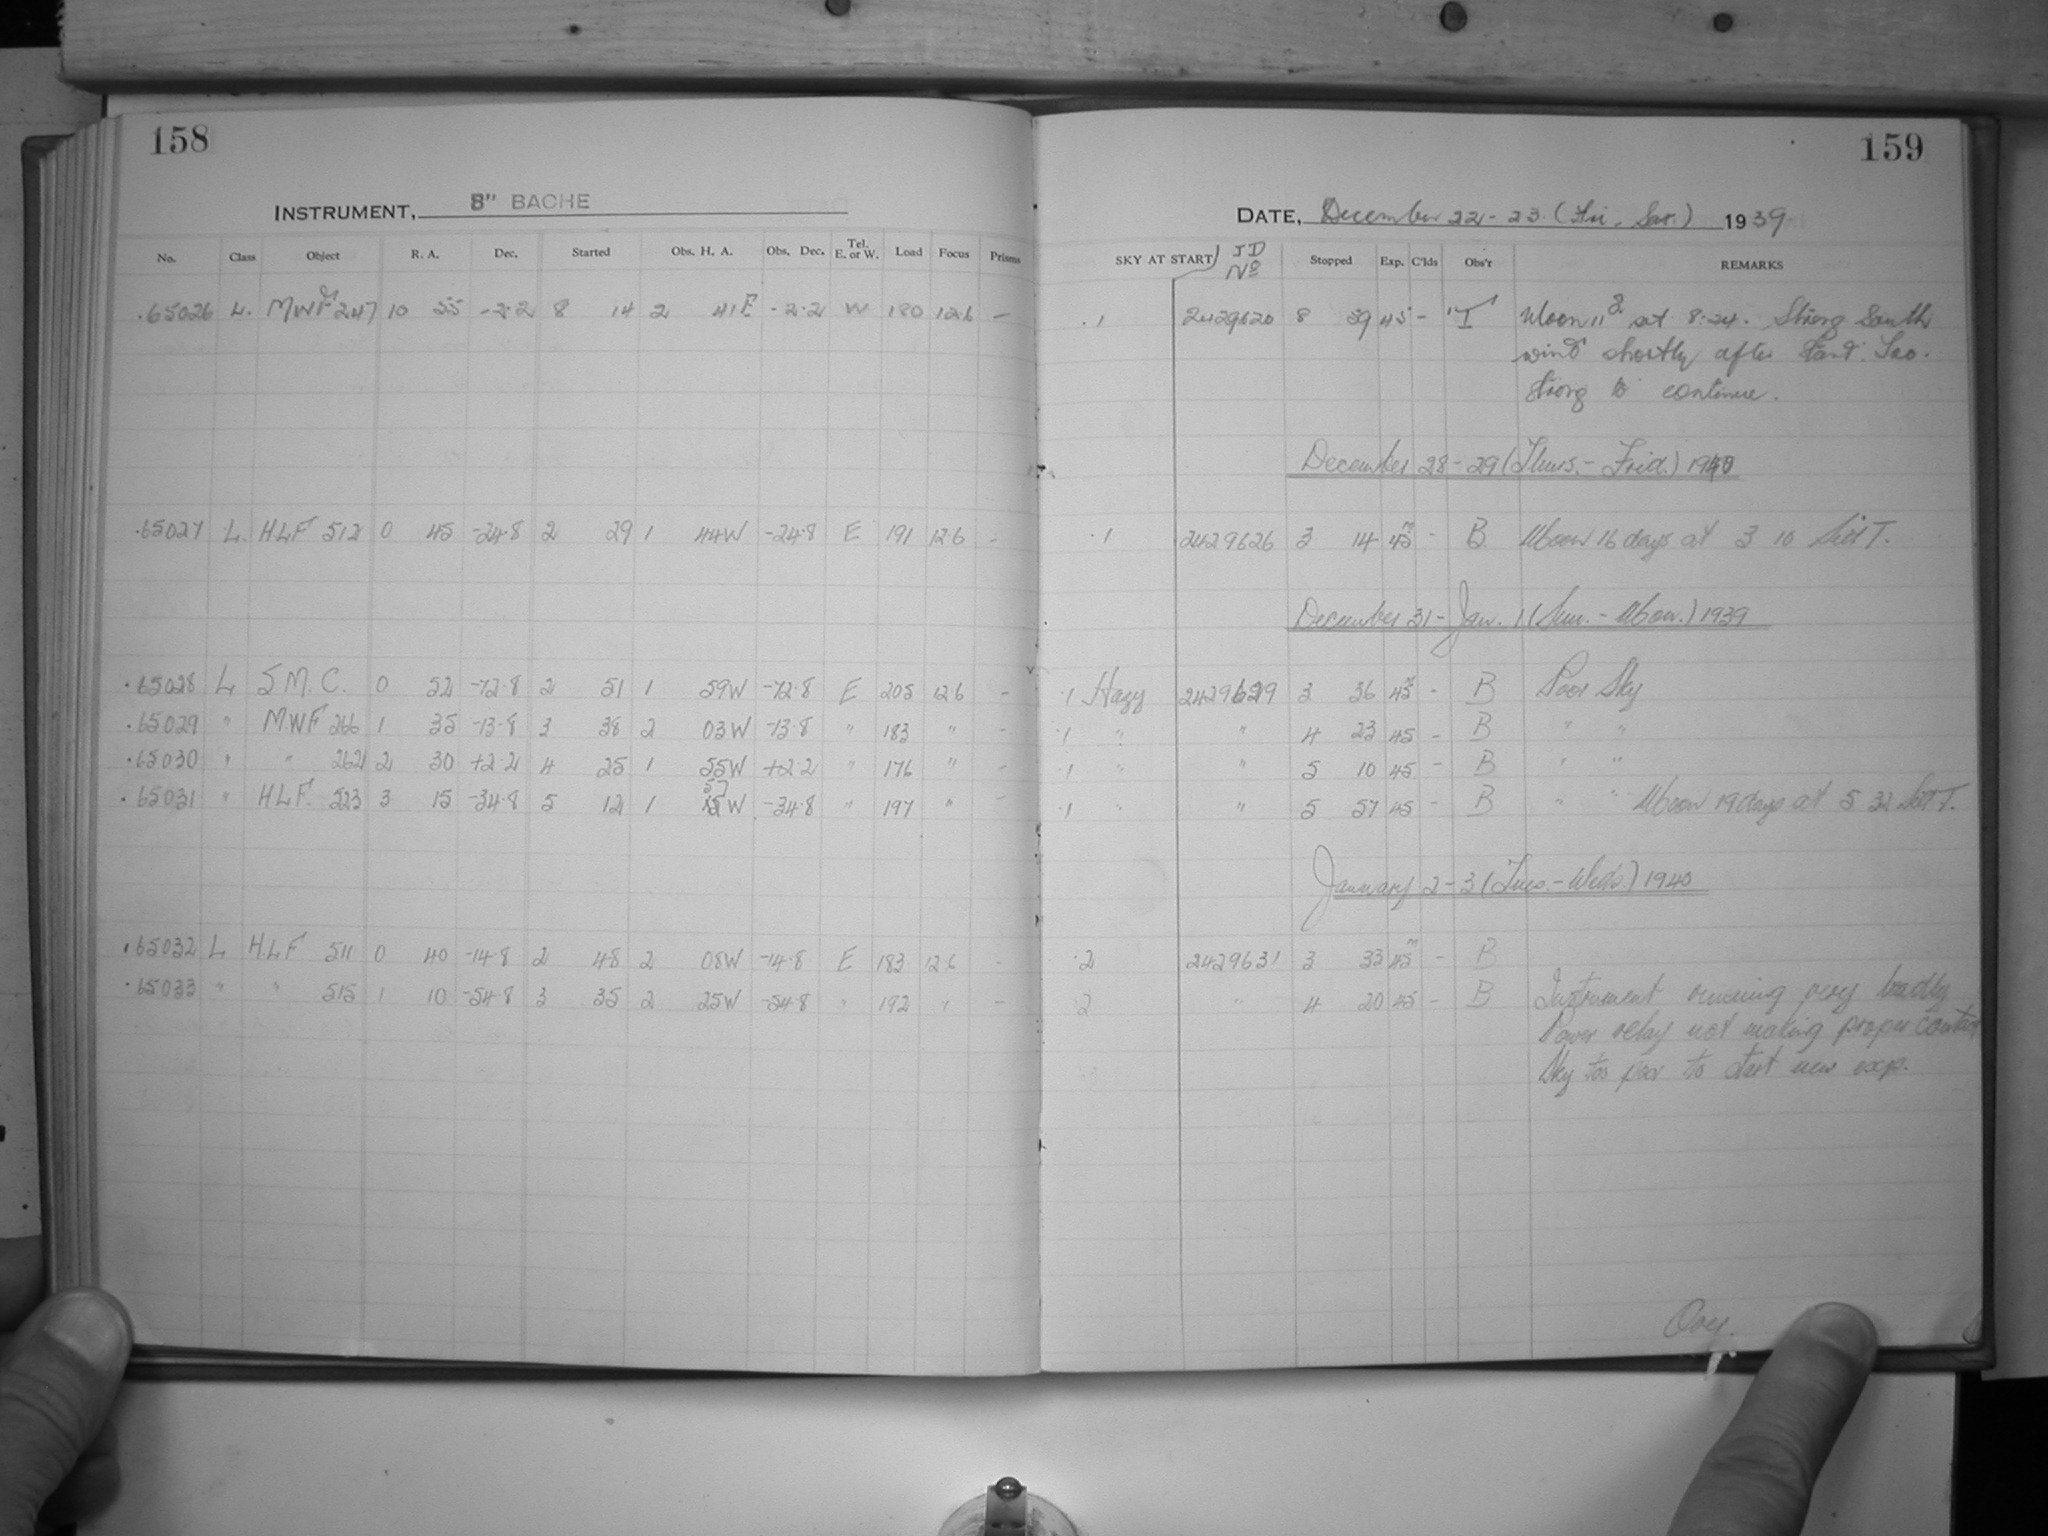 158
INSTRUMENT, 8" BACHE
No. Class Object R. A. Dec. Started Obs. H. A. Obs. Dec. Tel. E. or W. Load Focus Prisms
.65026 L. MWF 247 10 55 -2.2 8 14 2 41E -2.2 W 180 12.6 -
.65027 L. HLF 512 0 45 -24.8 2 29 1 44W -24.8 E 191 12.6 -
.65028 L S M. C. 0 52 -72.8 2 51 1 59W -72.8 E 205 12.6 -
.65029 " MWF 266 1 35 -13.8 3 38 2 03W -13.8 " 183 " -
.65030 " " 262 2 30 +2.2 4 25 1 55W +2.2 " 176 " -
.65031 " HLF. 523 3 15 -34.8 5 12 1 57W -34.8 " 197 " -
.65032 L H.L F 511 0 40 -14.8 2 48 2 08W -14.8 E 183 12.6 -
.65033 " " 515 1 10 -54.8 3 35 2 25W -54.8 " 192 " -
159
DATE, December 22-23. (Fri. Sat.) 1939
SKY AT START JD No Stopped Exp. C'lds Obs'r REMARKS
.1 2429620 8 39 45 - T Moon 11d at 8:24. Strong South
wind shortly after start. Too
strong to continue.
December 28-29 (Thurs.-Frid.) 1940
.1 2429626 3 14 45m - B. Moon 16 days at 3 10 Sid T.
December 31-Jan. 1 (Sun.-Mon.) 1939
.1 Hazy 2429629 3 36 45m - B Poor Sky
.1 " " 4 23 45 - B " "
.1 " " 5 10 45 - B " "
.1 " " 5 57 45 - B " " Moon 19 days at 5 32 Sid T.
January 2-3 (Tues.-Weds.) 1940
.2 2429631 3 33 45m - B
.2 " 4 20 45 - B Instrument running very badly
Power relay not making proper contact
Sky too poor to start new exp.
Over.